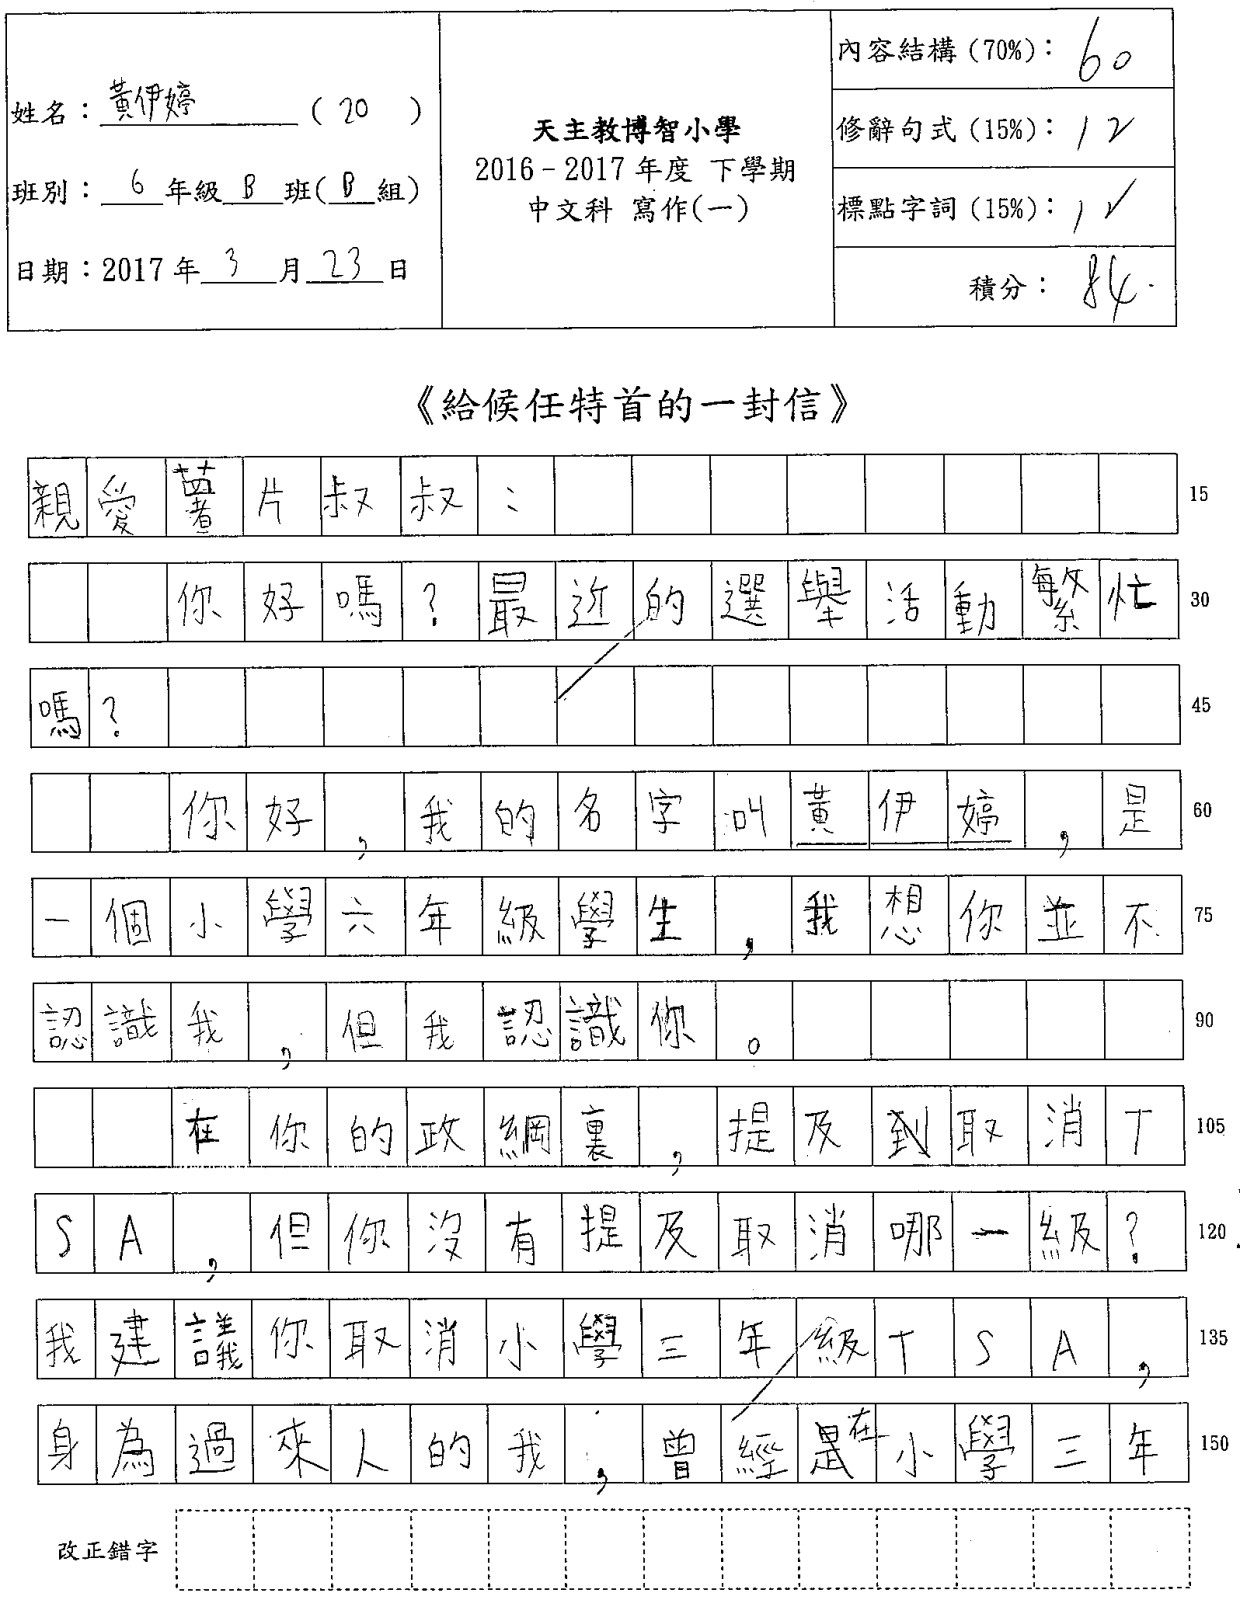 姓名：黃伊婷（20）
班別：6年級B班(B組)
日期：2017年3月23日
天主教博智小學
2016-2017年度 下學期
中文科 寫作(一)
內容結構(70%)：60
修辭句式(15%)：12
標點字詞(15%)：12
積分：84.
《給候任特首的一封信》
親愛薯片叔叔： 15
你好嗎？最近的選舉活動繁忙 30
嗎？ 45
你好，我的名字叫黃伊婷，是 60
一個小學六年級學生，我想你並不 75
認識我，但我認識你。 90
在你的政綱裏，提及到取消T 105
SA，但你沒有提及取消哪一級？ 120
我建議你取消小學三年級TSA， 135
身為過來人的我，曾經是在小學三年 150
改正錯字